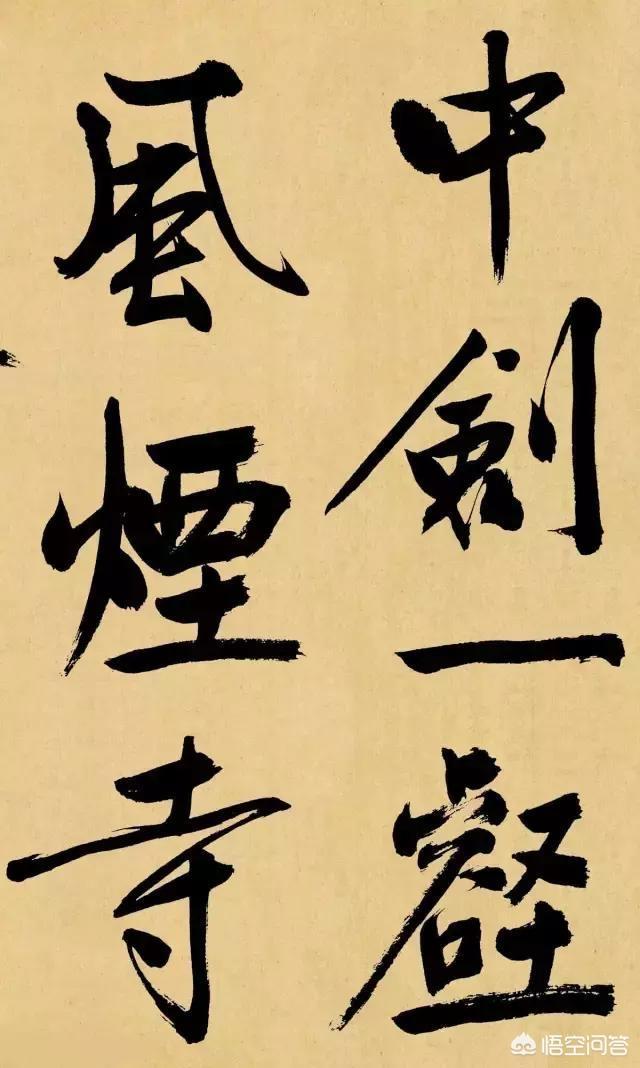 中劍一壑
風煙寺
悟空问答